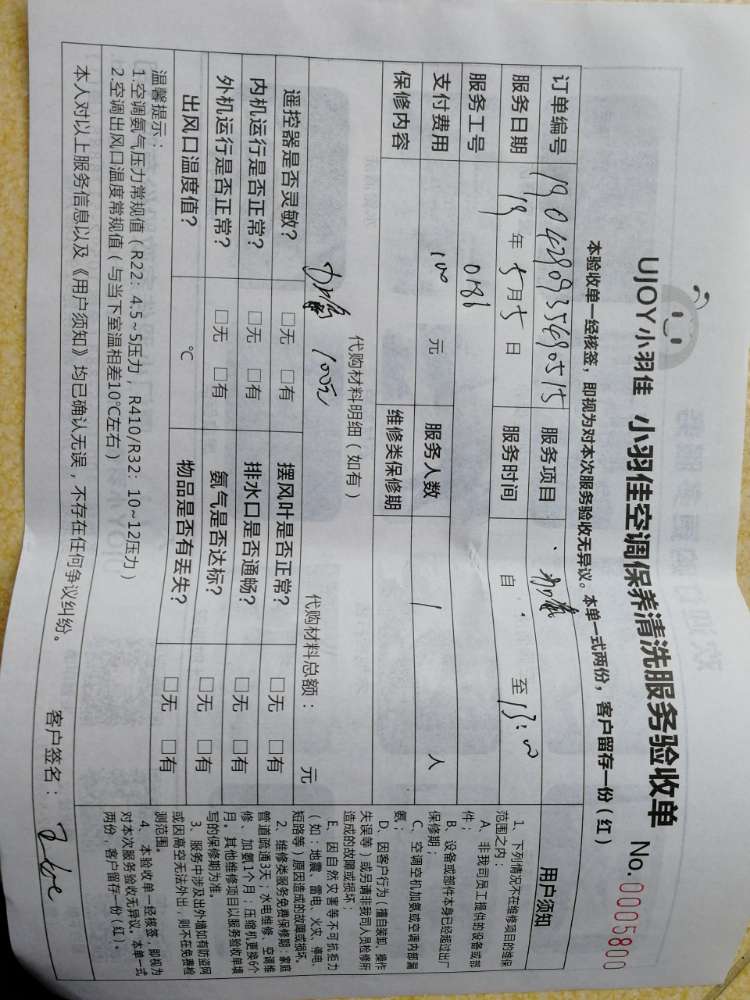 UJOY小羽佳 小羽佳空调保养清洗服务验收单 No.0005800
本验收单一经核签，即视为对本次服务验收无异议。本单一式两份，客户留存一份（红）
订单编号 服务项目 加氟
服务日期 19年5月5日 服务时间 自 至13:00
服务工号 0186
支付费用 100 元 服务人数 1 人
保修内容 维修类保修期
代购材料明细（如有） 代购材料总额： 元
加氟 100元
遥控器是否灵敏？ □无 □有 摆风叶是否正常？ □无 □有
内机运行是否正常？ □无 □有 排水口是否通畅？ □无 □有
外机运行是否正常？ □无 □有 氨气是否达标？ □无 □有
出风口温度值？ ℃ 物品是否有丢失？ □无 □有
温馨提示：
1.空调氨气压力常规值（R22：4.5~5压力，R410/R32：10~12压力）
2.空调出风口温度常规值（与当下室温相差10℃左右）
本人对以上服务信息以及《用户须知》均已确认无误，不存在任何争议纠纷。
客户签名：
用户须知
1、下列情况不在维修项目的维保
范围之内：
A、非我司员工提供的设备或部
件；
B、设备或部件本身已经超过出厂
保修期；
C、空调空机加氨或空调内部漏
氨；
D、因客户行为（擅自装卸、操作
失误等）或启请非我司人员检修所
造成的故障或损坏；
E、因自然灾害等不可抗拒力
（如：地震、雷电、火灾、停电、
短路等）原因造成的故障或损坏。
2、维修类服务免费保修期：家庭
管道疏通3天；水电维修、空调维
修、加氨1个月；压缩机更换6个
月。其他维修项目以服务验收单填
写的保修期为准。
3、服务中涉及出外墙如有防盗网
或因高空无法外出，则不在免费检
测范围。
4、本验收单一经核签，即视为
对本次服务验收无异议。本单一式
两份，客户留存一份（红）。